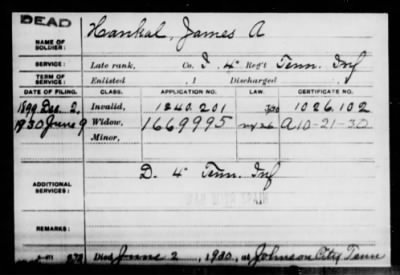 DEAD
NAME OF SOLDIER: Hankal, James A
SERVICE: Late rank, Co. I 4" Reg't Tenn. Inf
TERM OF SERVICE: Enlisted , 1 Discharged
DATE OF FILING. CLASS. APPLICATION NO. LAW. CERTIFICATE NO.
1899 Dec. 2, Invalid, 1240.201 1026.102
1930 June 9 Widow, 1669995 A10-21-30
Minor,
ADDITIONAL SERVICES: D. 4" Tenn. Inf
REMARKS:
Died June 2, 1930, at Johnson City Tenn